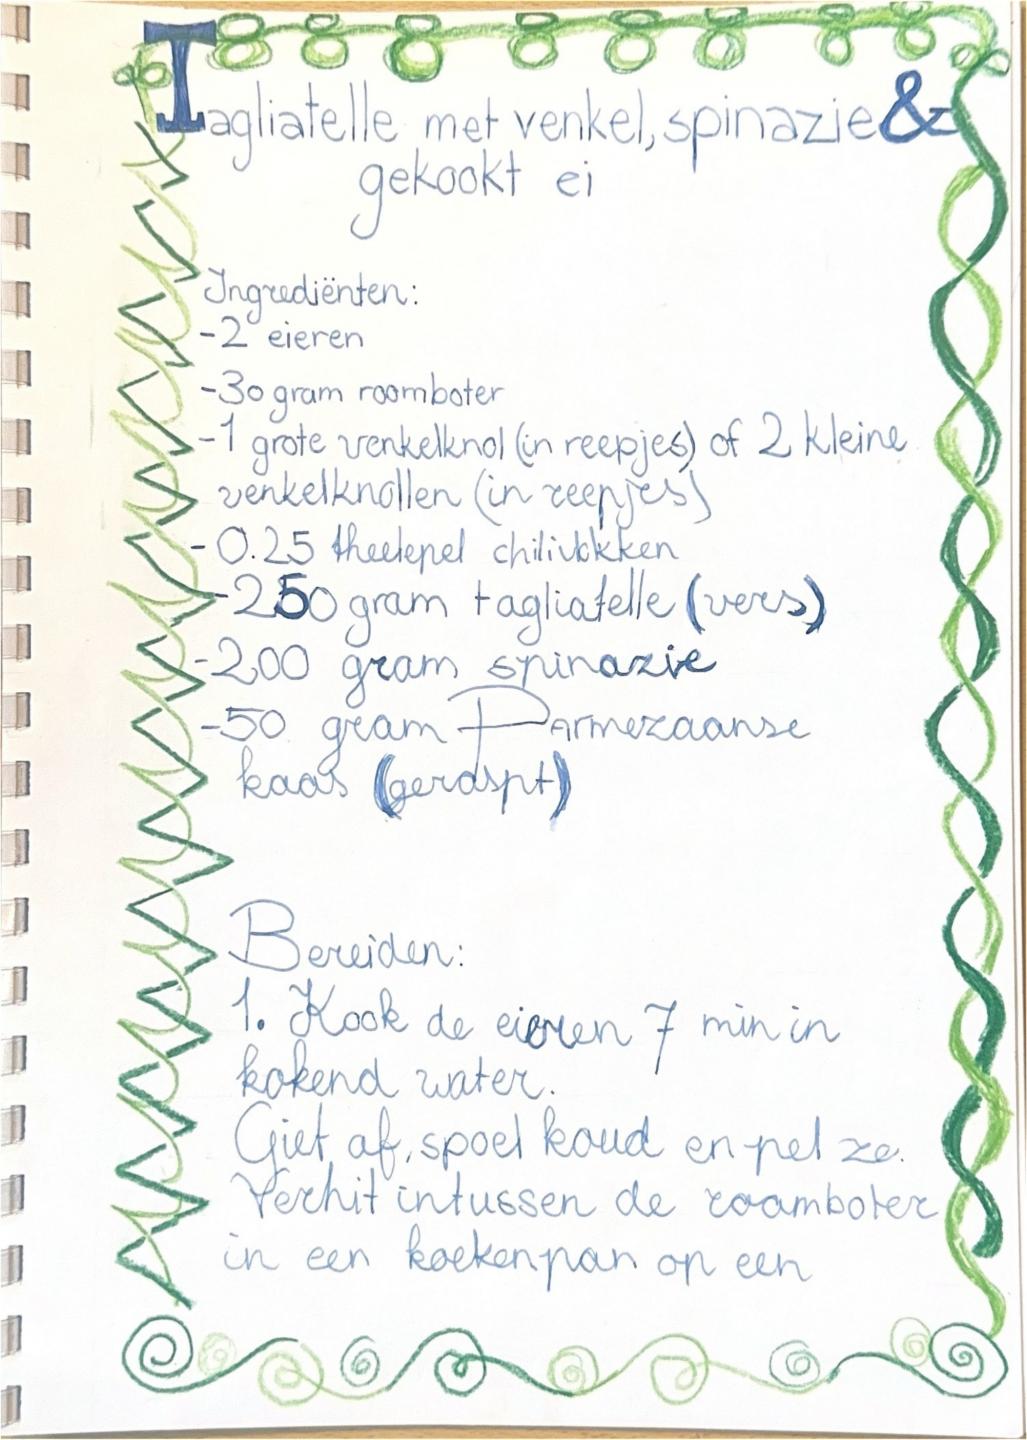 Tagliatelle met venkel, spinazie &
gekookt ei
Ingrediënten:
-2 eieren
-30 gram roomboter
-1 grote venkelknol (in reepjes) of 2 kleine
venkelknollen (in reepjes)
-0.25 theelepel chilivlokken
-250 gram tagliatelle (vers)
-200 gram spinazie
-50 gram Parmezaanse
kaas (geraspt)
Bereiden:
1. Kook de eieren 7 min in
kokend water.
Giet af, spoel koud en pel ze.
Verhit intussen de roomboter
in een koekenpan op een